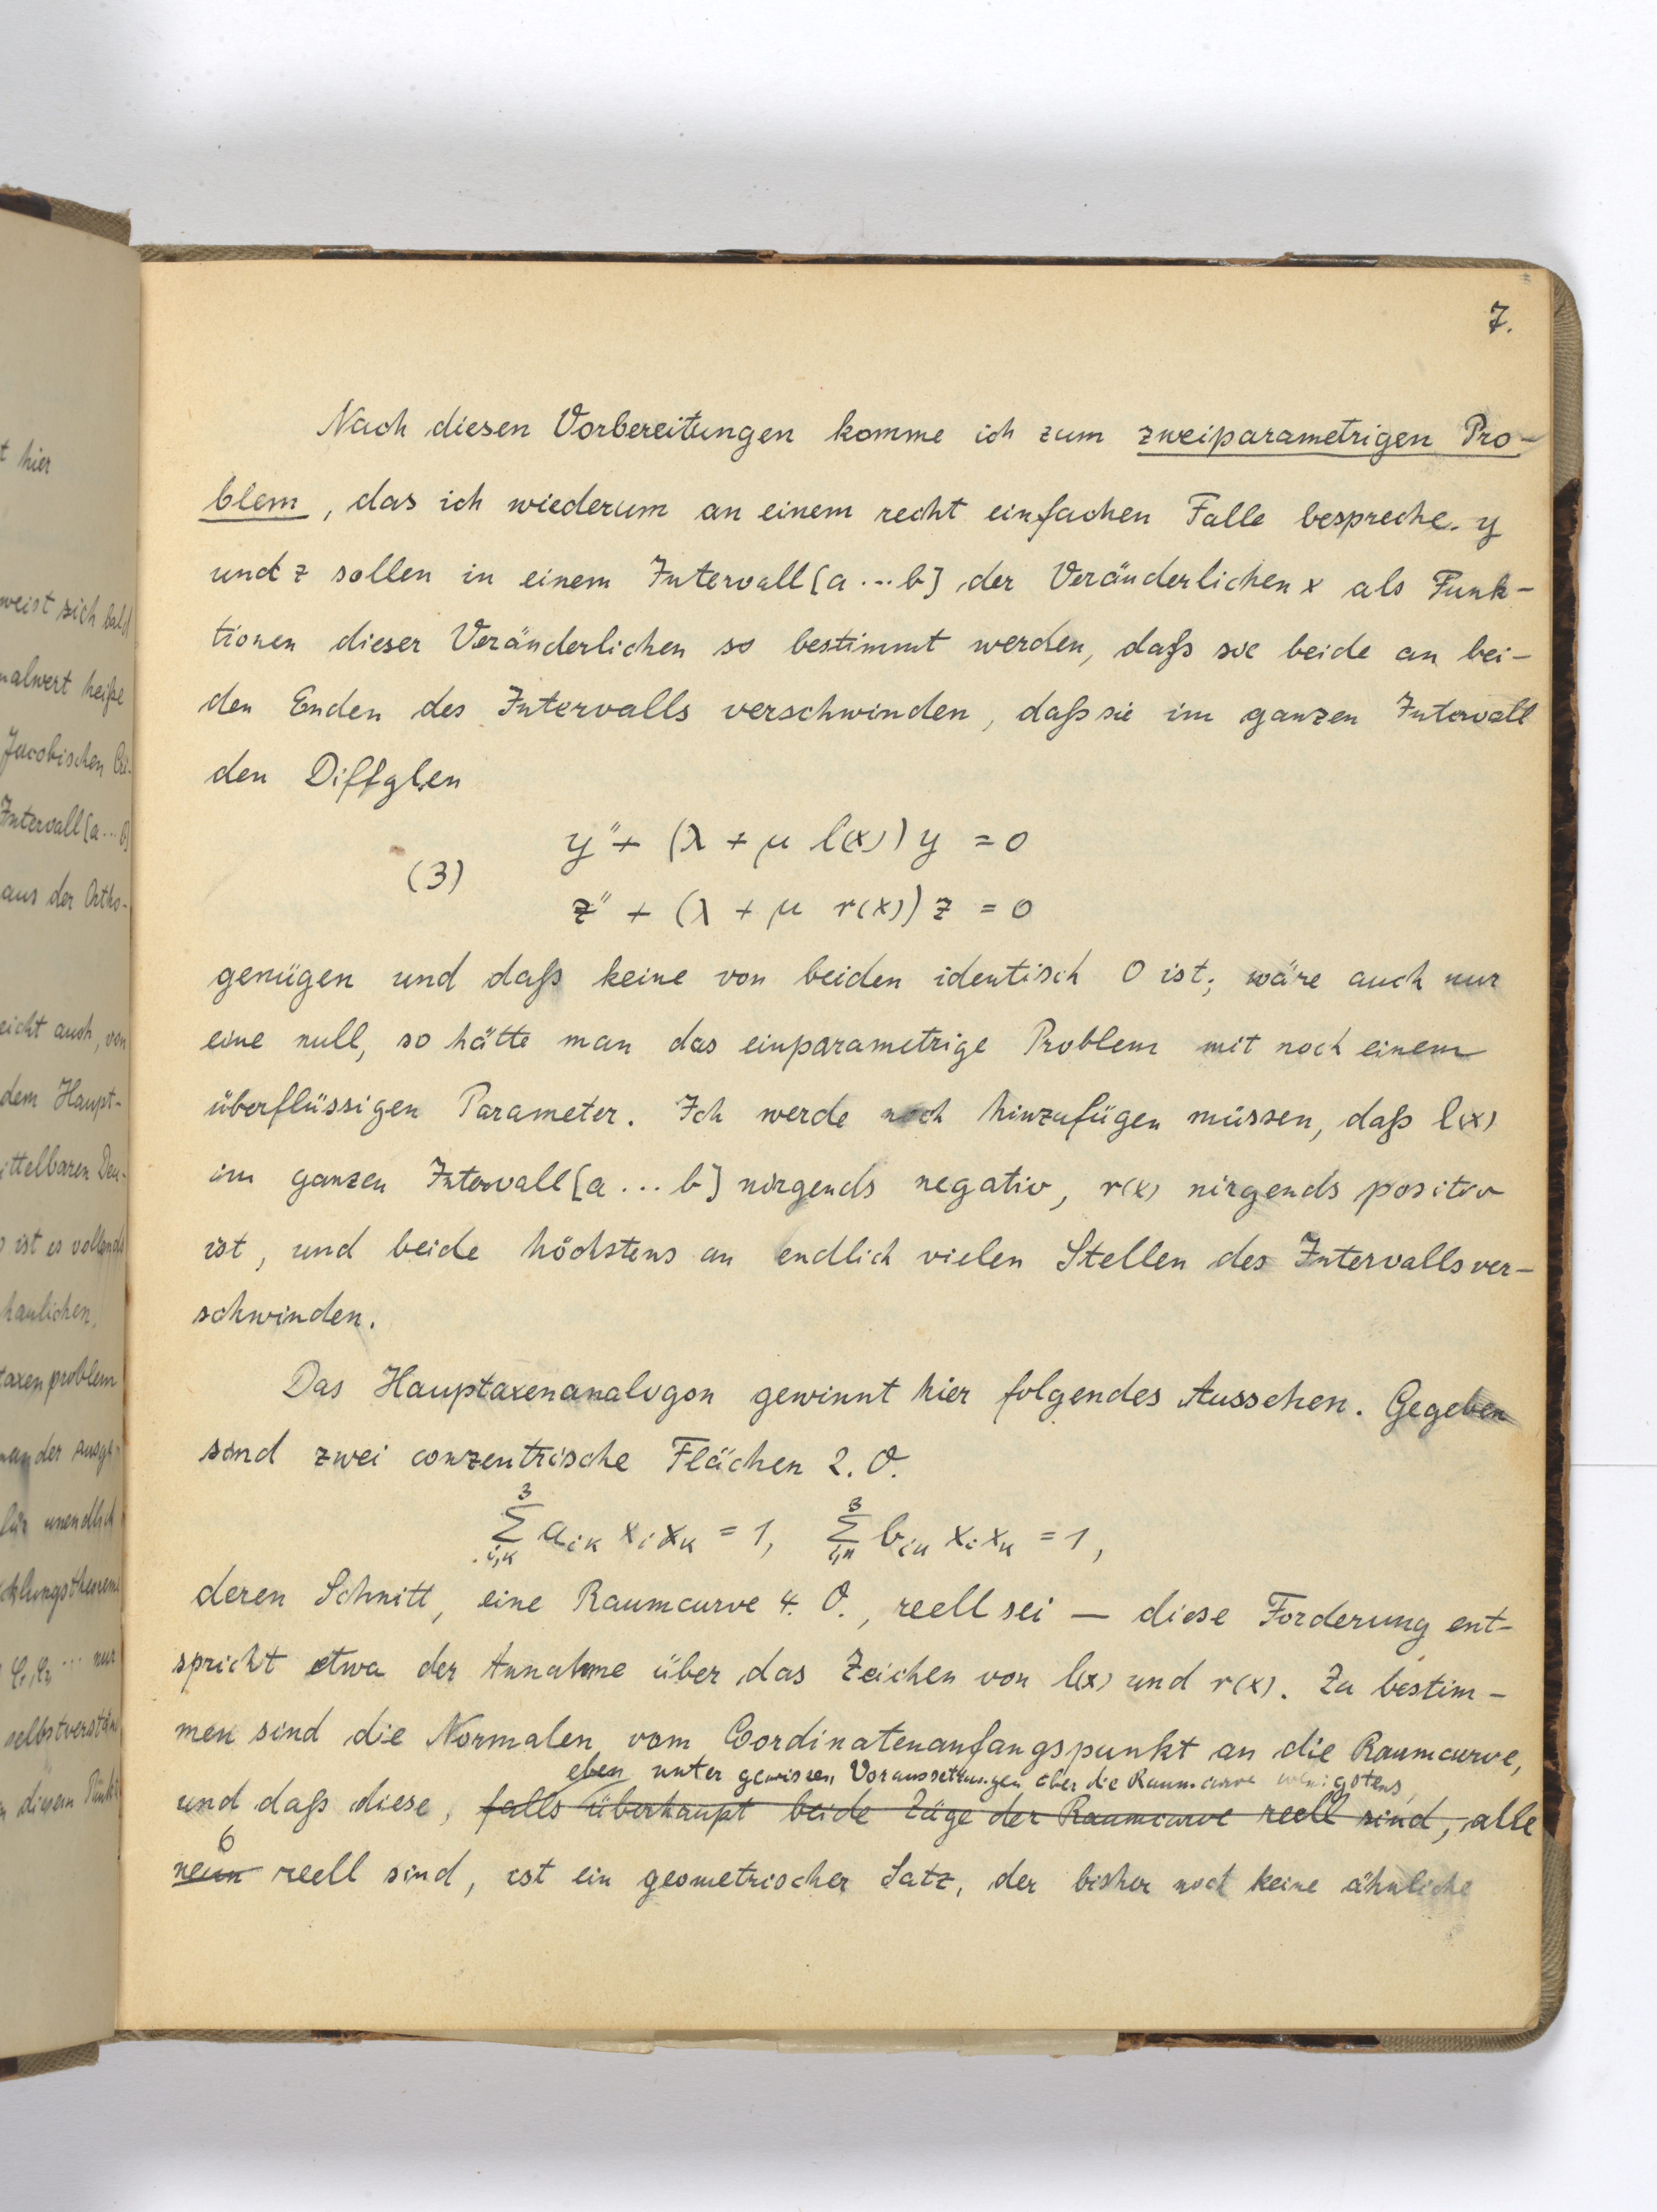 t hier
weist sich bald
nalwert heiße
Jacobischen
Intervall [a...b]
aus der Ortho-
eicht auch, von
dem Haupt-
ittelbaren Deu-
ist es vollends
haulichen,
taxenproblem
nander ausge-
für unendlich
cklungstheorem
φ₁, φ₂ ... nur
selbstverstän
diesem Punkt
7.
Nach diesen Vorbereitungen komme ich zum zweiparametrigen Pro-
blem, das ich wiederum an einem recht einfachen Falle bespreche. y
und z sollen in einem Intervall [a...b] der Veränderlichen x als Funk-
tionen dieser Veränderlichen so bestimmt werden, daß sie beide an bei-
den Enden des Intervalls verschwinden, daß sie im ganzen Intervall
den Diffglen
y'' + (λ + μ l(x)) y = 0
(3)
z'' + (λ + μ r(x)) z = 0
genügen und daß keine von beiden identisch 0 ist; wäre auch nur
eine null, so hätte man das einparametrige Problem mit noch einem
überflüssigen Parameter. Ich werde noch hinzufügen müssen, daß l(x)
im ganzen Intervall [a...b] nirgends negativ, r(x) nirgends positiv
ist, und beide höchstens an endlich vielen Stellen des Intervalls ver-
schwinden.
Das Hauptaxenanalogon gewinnt hier folgendes Aussehen. Gegeben
sind zwei conzentrische Flächen 2. O.
∑³ᵢ,ₖ aᵢₖ xᵢ xₖ = 1, ∑³ᵢ,ₖ bᵢₖ xᵢ xₖ = 1,
deren Schnitt, eine Raumcurve 4. O., reell sei — diese Forderung ent-
spricht etwa der Annahme über das Zeichen von l(x) und r(x). Zu bestim-
men sind die Normalen vom Coordinatenanfangspunkt an die Raumcurve,
eben unter gewissen Voraussetzungen über die Raumcurve wenigstens,
und daß diese, falls überhaupt beide Züge der Raumcurve reell sind, alle
6
neun reell sind, ist ein geometrischer Satz, der bisher noch keine ähnliche